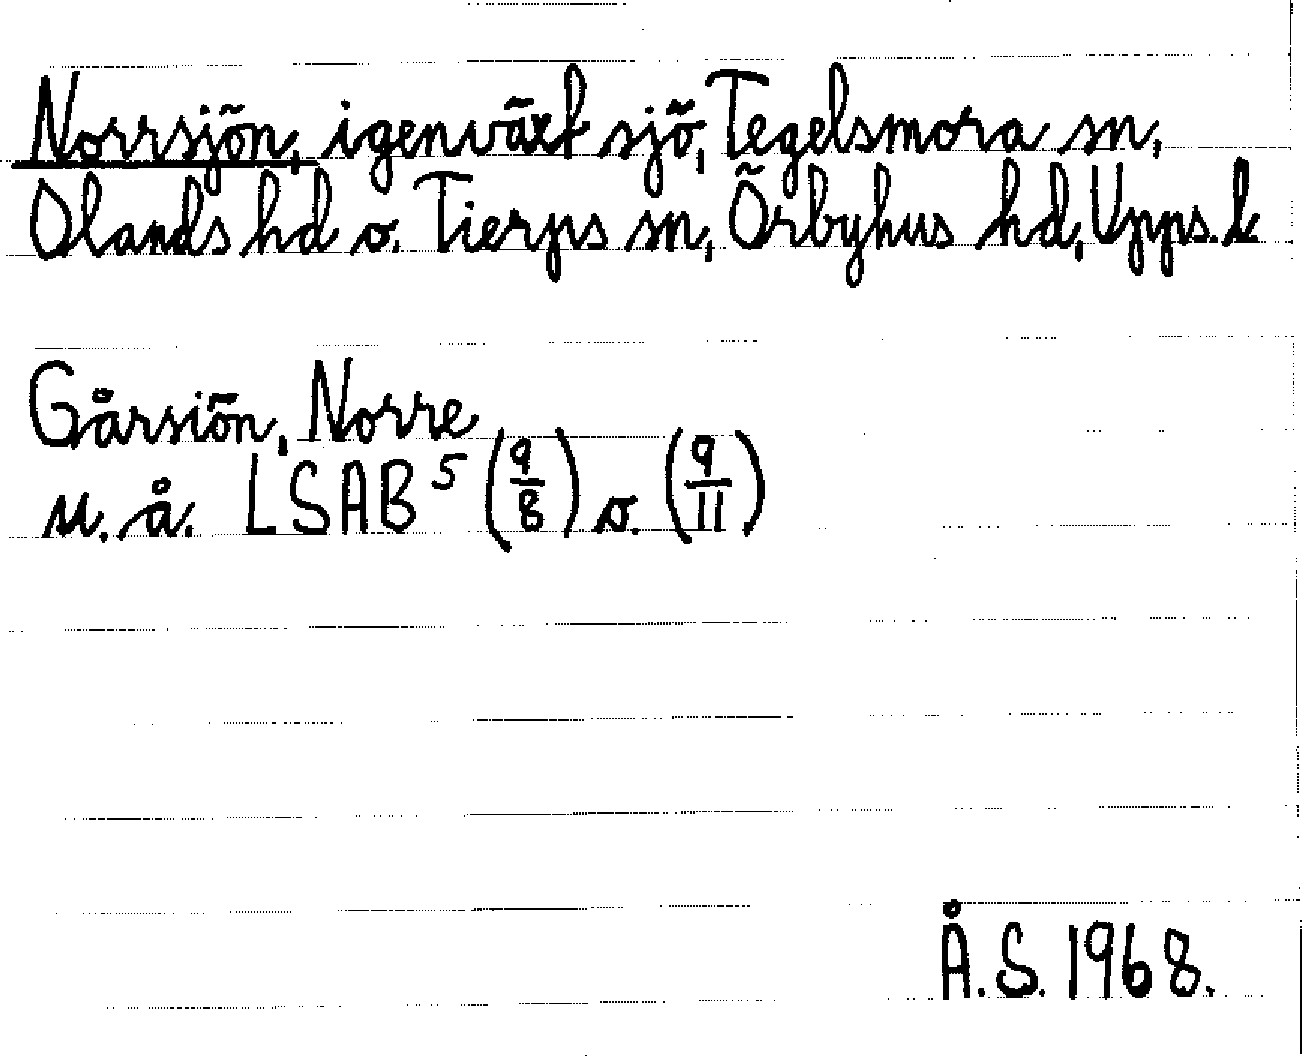 Norrsjön, igenväxt sjö, Tegelsmora sn,
Olands hd o. Tierps sn, Örbyhus hd, Upps. l.
Gårsiön, Norre
u. å. LSAB⁵ (9/8) o. (9/11)
Å.S. 1968.